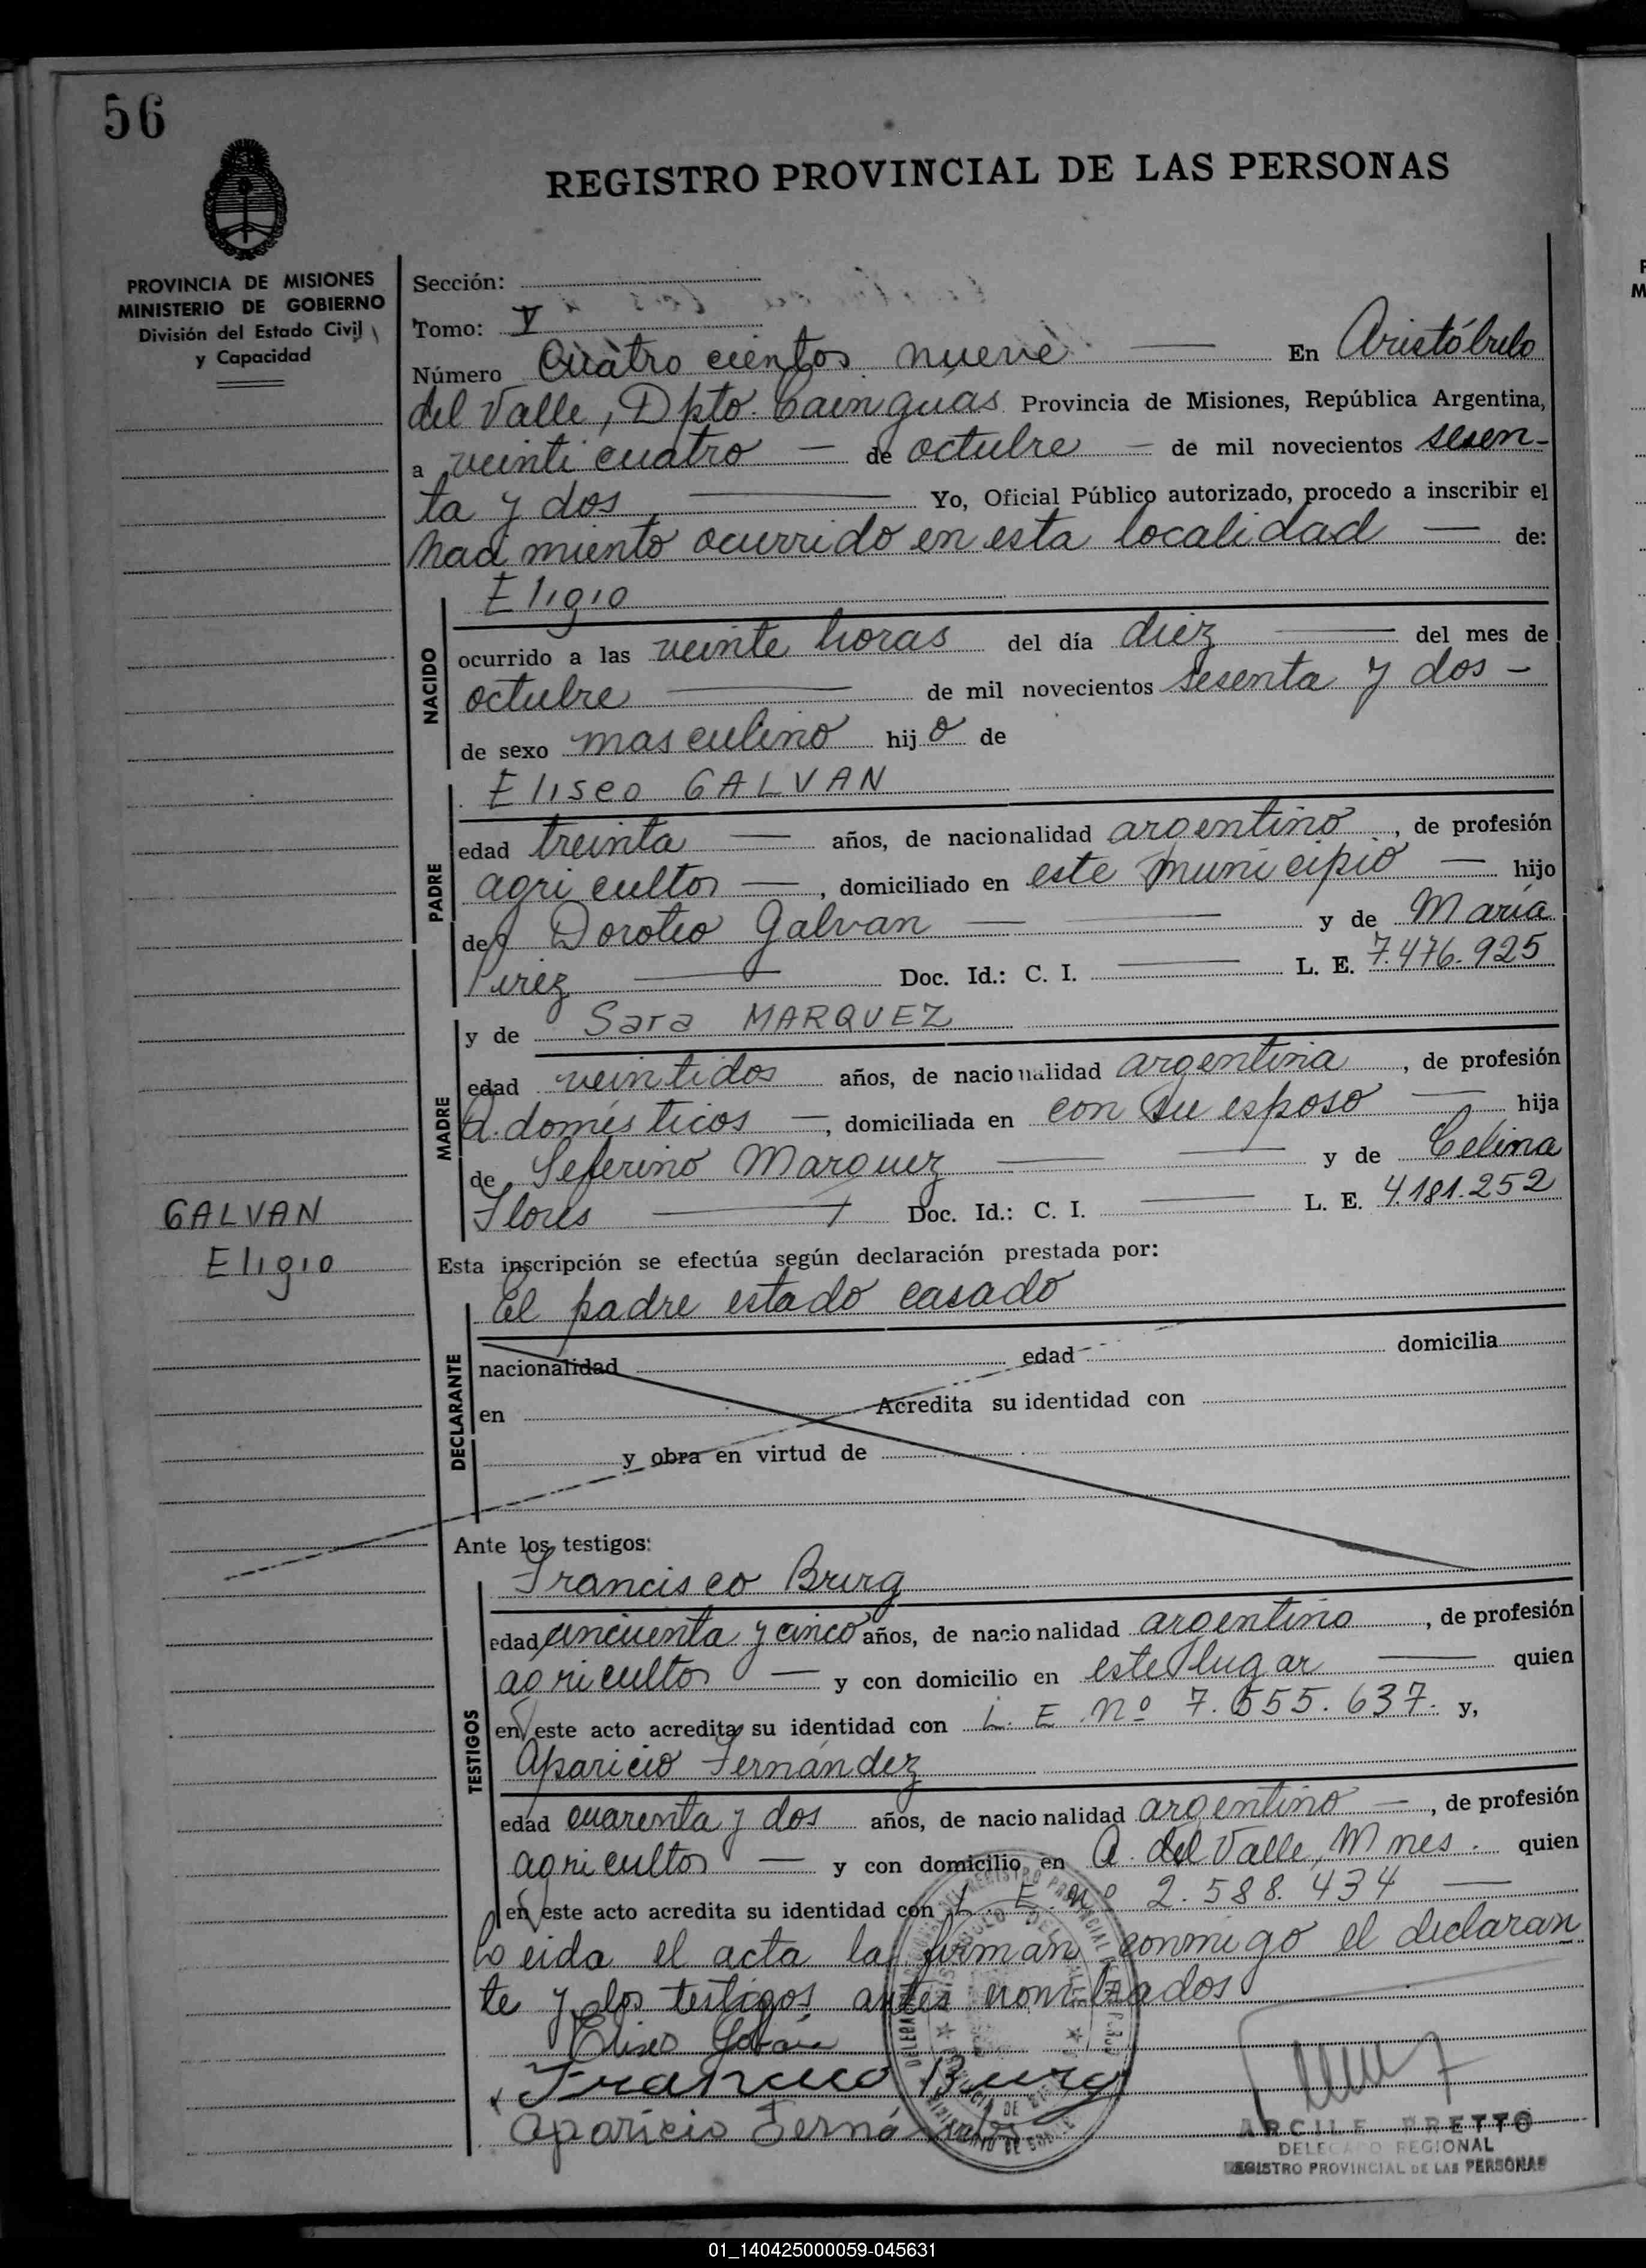 56
REGISTRO PROVINCIAL DE LAS PERSONAS
PROVINCIA DE MISIONES
MINISTERIO DE GOBIERNO
División del Estado Civil
y Capacidad
Sección:
Tomo: V
Número Cuatro cientos nueve — En Aristóbulo
del Valle, Dpto. Cainguás Provincia de Misiones, República Argentina,
a veinti cuatro — de octubre — de mil novecientos sesen-
ta y dos — Yo, Oficial Público autorizado, procedo a inscribir el
naci miento ocurrido en esta localidad — de:
Eligio
NACIDO
ocurrido a las veinte horas del día diez — del mes de
octubre — de mil novecientos sesenta y dos -
de sexo masculino hijo de
Eliseo GALVAN
PADRE
edad treinta — años, de nacionalidad argentino, de profesión
agricultor —, domiciliado en este municipio — hijo
de Doroteo Galvan — y de María
Perez — Doc. Id.: C. I. — L. E. 7.476.925
MADRE
y de Sara MARQUEZ
edad veintidos años, de nacionalidad argentina, de profesión
Q. domésticos —, domiciliada en con su esposo — hija
de Seferino Marquez — y de Celina
Flores — Doc. Id.: C. I. — L. E. 4.181.252
GALVAN
Eligio
Esta inscripción se efectúa según declaración prestada por:
El padre estado casado
DECLARANTE
nacionalidad edad domicilia
en Acredita su identidad con
y obra en virtud de
Ante los testigos:
TESTIGOS
Francisco Burg
edad cincuenta y cinco años, de nacionalidad argentino, de profesión
agricultor — y con domicilio en este lugar — quien
en este acto acredita su identidad con L. E. Nº 7.555.637. y,
Aparicio Fernández
edad cuarenta y dos años, de nacionalidad argentino —, de profesión
agricultor — y con domicilio en A. del Valle, Mnes. quien
en este acto acredita su identidad con L. E. nº 2.588.434 —
Leida el acta la firman conmigo el declaran
te y los testigos antes nombrados
Eliseo Galván
Francisco Burg
Aparicio Fernández
ARCILE PRETTO
DELEGADO REGIONAL
REGISTRO PROVINCIAL DE LAS PERSONAS
01_140425000059-045631